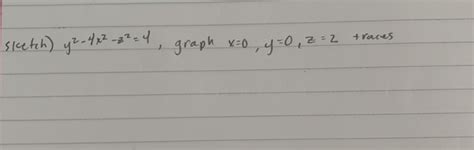 sketch) y²-4x²-z²=4, graph x=0, y=0, z=2 traces